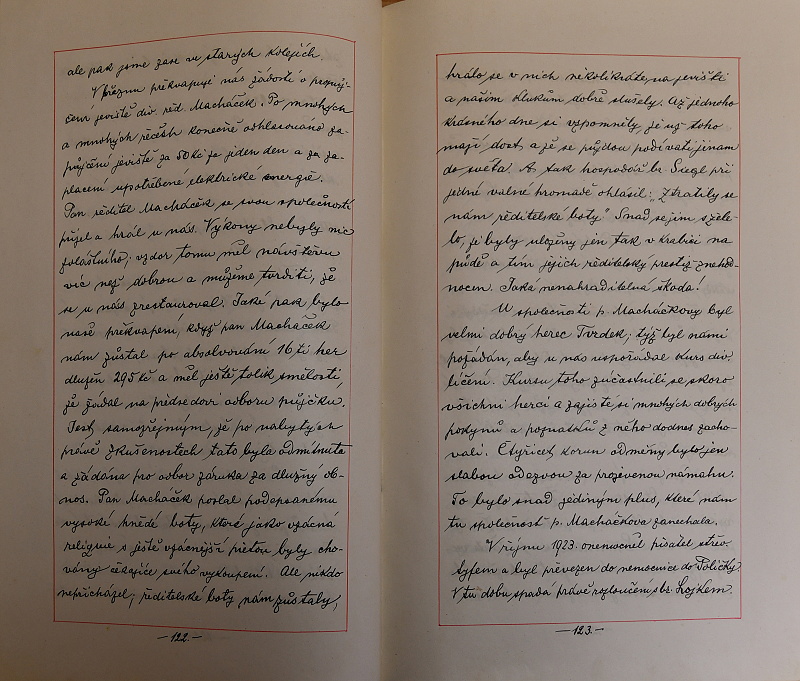 ale pak jsme zase ve starých kolejích.
V březnu překvapuje nás žádostí o propůj-
čení jeviště div. řed. Macháček. Po mnohých
a mnohých řečech konečně odhlasováno za-
půjčení jeviště za 50 Kč za jeden den a za za-
placení upotřebené elektrické energie.
Pan ředitel Macháček se svou společností
přijel a hrál u nás. Výkony nebyly nic
zvláštního; vzdor tomu měl návštěvu
víc než dobrou a můžeme tvrditi, že
se u nás zrestauroval. Jaké pak bylo
naše překvapení, když pan Macháček
nám zůstal po absolvování 16 ti her
dlužen 295 Kč a měl ještě tolik smělosti,
že žádal na předsedovi odboru půjčku.
Jest samozřejmým, že po nabytých
právě zkušenostech tato byla odmítnuta
a žádána pro odbor záruka za dlužný ob-
nos. Pan Macháček poslal podepsanému
vysoké hnědé boty, které jako vzácná
religuie s ještě vzácnější pietou byly cho-
vány čekajíce svého vykoupení. Ale nikdo
nepřicházel; ředitelské boty nám zůstaly,
—122.—
hrálo se v nich několikráte, na jevišti
a našim klukům dobře slušely. Až jednoho
krásného dne si vzpomněly, že už toho
mají dost a že se půjdou podívati jinam
do světa. A tak hospodář br. Siegl při
jedné valné hromadě ohlásil: „Ztratily se
nám ředitelské boty." Snad se jim stýs-
lo, že byly uloženy jen tak v krabici na
půdě a tím jejich ředitelský prestyž znehod-
nocen. Jaká nenahraditelná škoda!
U společnosti p. Macháčkovy byl
velmi dobrý herec Tvrdek; týž byl námi
požádán, aby u nás uspořádal kurs div.
líčení. Kursu toho zúčastnili se skoro
všichni herci a zajisté si mnohých dobrých
pokynů a poznatků z něho dodnes zacho-
vali. Čtyřicet korun odměny bylo jen
slabou odezvou za projevenou námahu.
To bylo snad jediným plus, které nám
tu společnost p. Macháčkova zanechala.
V říjnu 1923. onemocněl pisatel střev.
tyfem a byl převezen do nemocnice do Poličky.
V tu dobu spadá právě rozloučení s br. Lojkem.
—123.—